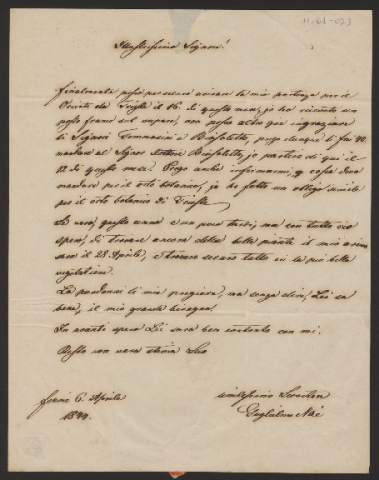 Illustrissimo Signore!
finalmente posso per sicuro avisare la mia partenza per il
Oriente da Trieste il 16 di questo mese, jo ho ricevuto un
posto franco sul vapore, non posso altro que ringraziare
li Signori Tommasini e Biasoletto, prego dunque di far
mandare al Signor Dottore Biasoletto, jo partiro di qui il
12 di questo mese. Prego anche informarmi, que cosa devo
mandare per il orto botanico, jo ho fatto un obligo simile
per il orto botanico di Trieste.
Se vero, questo anno e un poco tardi, ma con tutto cio
spero, di trovare ancora delle belle piante il mio arivo
sara il 28 Aprile, e trovare sicuro tutto in la piu bella
vegetazione.
La perdonar li mia preghiera, ma senza altro, Lei sa
bene, il mio grande bisogno.
In avanti spero Lei sara ben contento con mi.
Resto con vera stima Suo
fermé 6. Aprile
1844.
umilissimo Servitore
Guglielmo Noé